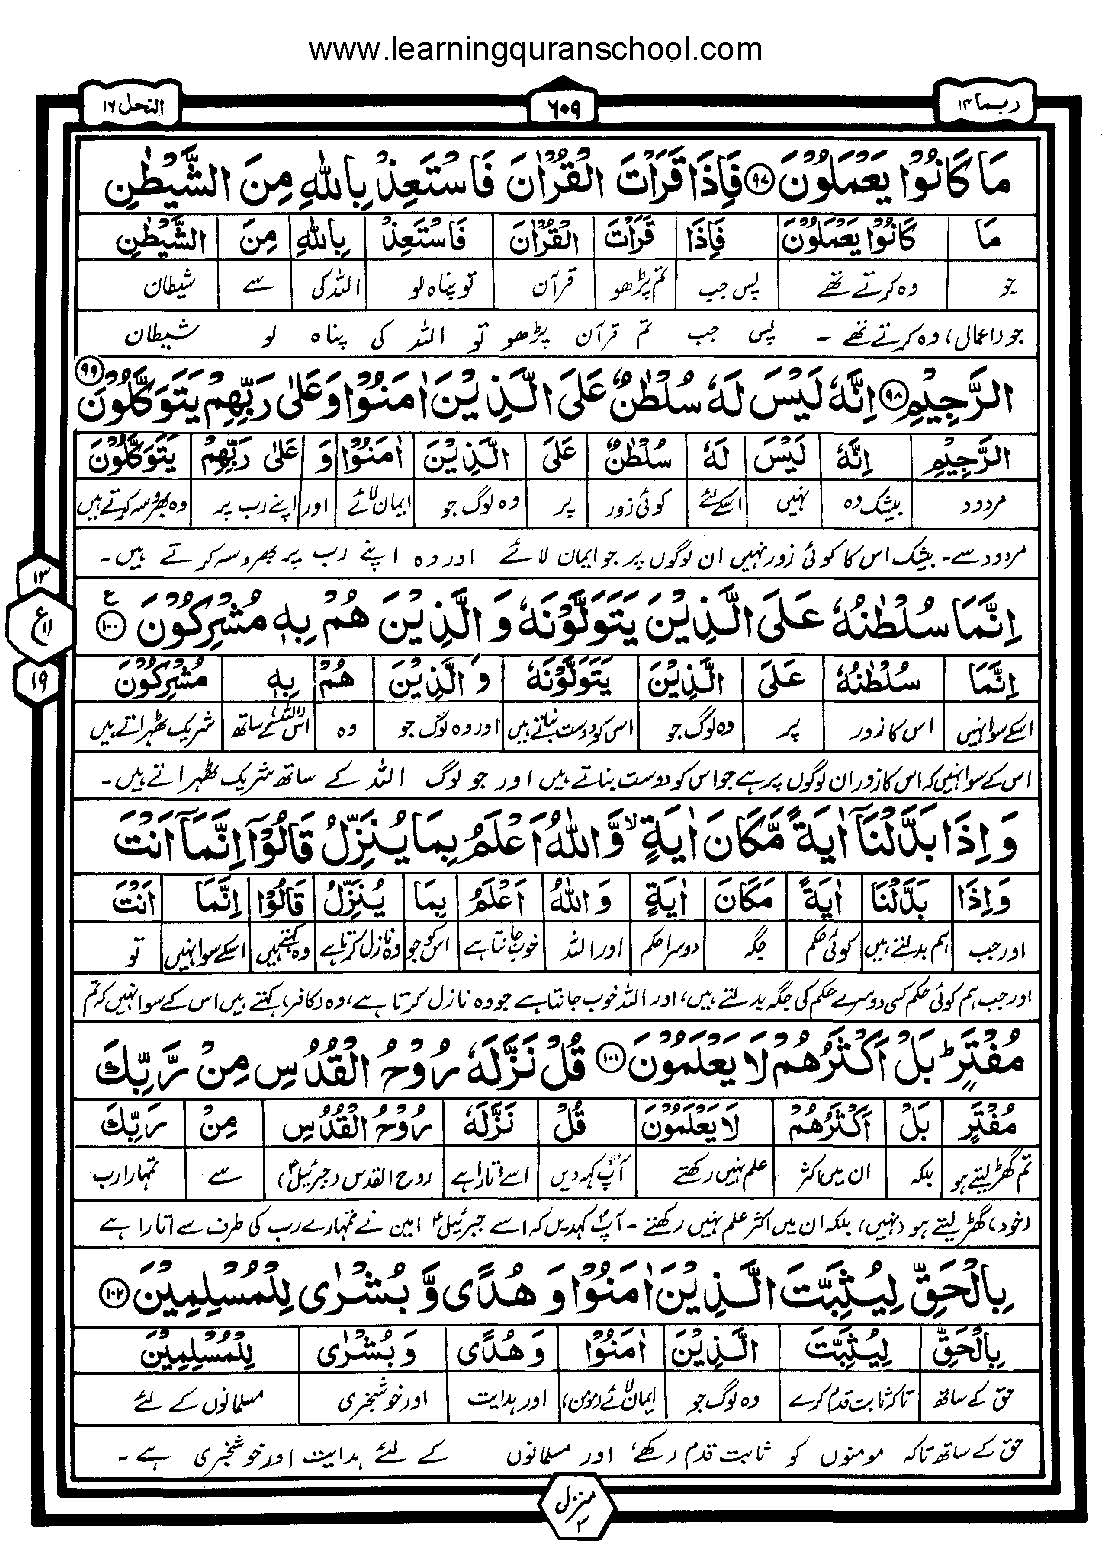 www.learningquranschool.com
ربما ۱۴
۶۰۹
النحل ۱۶
مَا كَانُوْا يَعْمَلُوْنَ ۹۷ فَاِذَا قَرَاْتَ الْقُرْاٰنَ فَاسْتَعِذْ بِاللّٰهِ مِنَ الشَّيْطٰنِ
مَا كَانُوْا يَعْمَلُوْنَ فَاِذَا قَرَاْتَ الْقُرْاٰنَ فَاسْتَعِذْ بِاللّٰهِ مِنَ الشَّيْطٰنِ
جو وہ کرتے تھے پس جب تم پڑھو قرآن تو پناہ لو اللہ کی سے شیطان
جو (اعمال) وہ کرتے تھے ۔ پس جب تم قرآن پڑھو تو اللہ کی پناہ لو شیطان
الرَّجِيْمِ ۹۸ اِنَّهٗ لَيْسَ لَهٗ سُلْطٰنٌ عَلَى الَّذِيْنَ اٰمَنُوْا وَعَلٰى رَبِّهِمْ يَتَوَكَّلُوْنَ ۹۹
الرَّجِيْمِ اِنَّهٗ لَيْسَ لَهٗ سُلْطٰنٌ عَلَى الَّذِيْنَ اٰمَنُوْا وَ عَلٰى رَبِّهِمْ يَتَوَكَّلُوْنَ
مردود بیشک وہ نہیں اسکے لئے کوئی زور پر وہ لوگ جو ایمان لائے اور اپنے رب پر وہ بھروسہ کرتے ہیں
مردود سے۔ بیشک اس کا کوئی زور نہیں ان لوگوں پر جو ایمان لائے اور وہ اپنے رب پر بھروسہ کرتے ہیں۔
۱۳
ع
۱۱
۱۹
اِنَّمَا سُلْطٰنُهٗ عَلَى الَّذِيْنَ يَتَوَلَّوْنَهٗ وَالَّذِيْنَ هُمْ بِهٖ مُشْرِكُوْنَ ۱۰۰ ع
اِنَّمَا سُلْطٰنُهٗ عَلَى الَّذِيْنَ يَتَوَلَّوْنَهٗ وَالَّذِيْنَ هُمْ بِهٖ مُشْرِكُوْنَ
اسکے سوا نہیں اس کا زور پر وہ لوگ جو اس کو دوست بناتے ہیں اور وہ لوگ جو وہ اس (اللہ) کے ساتھ شریک ٹھہراتے ہیں
اس کے سوا نہیں کہ اس کا زور ان لوگوں پر ہے جو اس کو دوست بناتے ہیں اور جو لوگ اللہ کے ساتھ شریک ٹھہراتے ہیں۔
وَاِذَا بَدَّلْنَآ اٰيَةً مَّكَانَ اٰيَةٍ ۙ وَّاللّٰهُ اَعْلَمُ بِمَا يُنَزِّلُ قَالُوْٓا اِنَّمَآ اَنْتَ
وَاِذَا بَدَّلْنَا اٰيَةً مَكَانَ اٰيَةٍ وَاللّٰهُ اَعْلَمُ بِمَا يُنَزِّلُ قَالُوْا اِنَّمَا اَنْتَ
اور جب ہم بدلتے ہیں کوئی حکم جگہ دوسرا حکم اور اللہ خوب جانتا ہے اس کو جو وہ نازل کرتا ہے وہ کہتے ہیں اسکے سوا نہیں تو
اور جب ہم کوئی حکم کسی دوسرے حکم کی جگہ بدلتے ہیں، اور اللہ خوب جانتا ہے جو وہ نازل کرتا ہے، وہ (کافر) کہتے ہیں اس کے سوا نہیں کہ تم
مُفْتَرٍ ؕ بَلْ اَكْثَرُهُمْ لَا يَعْلَمُوْنَ ۱۰۱ قُلْ نَزَّلَهٗ رُوْحُ الْقُدُسِ مِنْ رَّبِّكَ
مُفْتَرٍ بَلْ اَكْثَرُهُمْ لَا يَعْلَمُوْنَ قُلْ نَزَّلَهٗ رُوْحُ الْقُدُسِ مِنْ رَبِّكَ
تم گھڑ لیتے ہو بلکہ ان میں اکثر علم نہیں رکھتے آپؐ کہہ دیں اسے اتارا ہے روح القدس (جبرئیلؑ) سے تمہارا رب
(خود) گھڑ لیتے ہو (نہیں) بلکہ ان میں اکثر علم نہیں رکھتے ۔ آپؐ کہدیں کہ اسے جبرئیلؑ امین نے تمہارے رب کی طرف سے اتارا ہے
بِالْحَقِّ لِيُثَبِّتَ الَّذِيْنَ اٰمَنُوْا وَهُدًى وَّبُشْرٰى لِلْمُسْلِمِيْنَ ۱۰۲
بِالْحَقِّ لِيُثَبِّتَ الَّذِيْنَ اٰمَنُوْا وَهُدًى وَبُشْرٰى لِلْمُسْلِمِيْنَ
حق کے ساتھ تاکہ ثابت قدم کرے وہ لوگ جو ایمان لائے (مومن) اور ہدایت اور خوشخبری مسلمانوں کے لئے
حق کے ساتھ تاکہ مومنوں کو ثابت قدم رکھے، اور مسلمانوں کے لئے ہدایت اور خوشخبری ہے ۔
منزل ۳